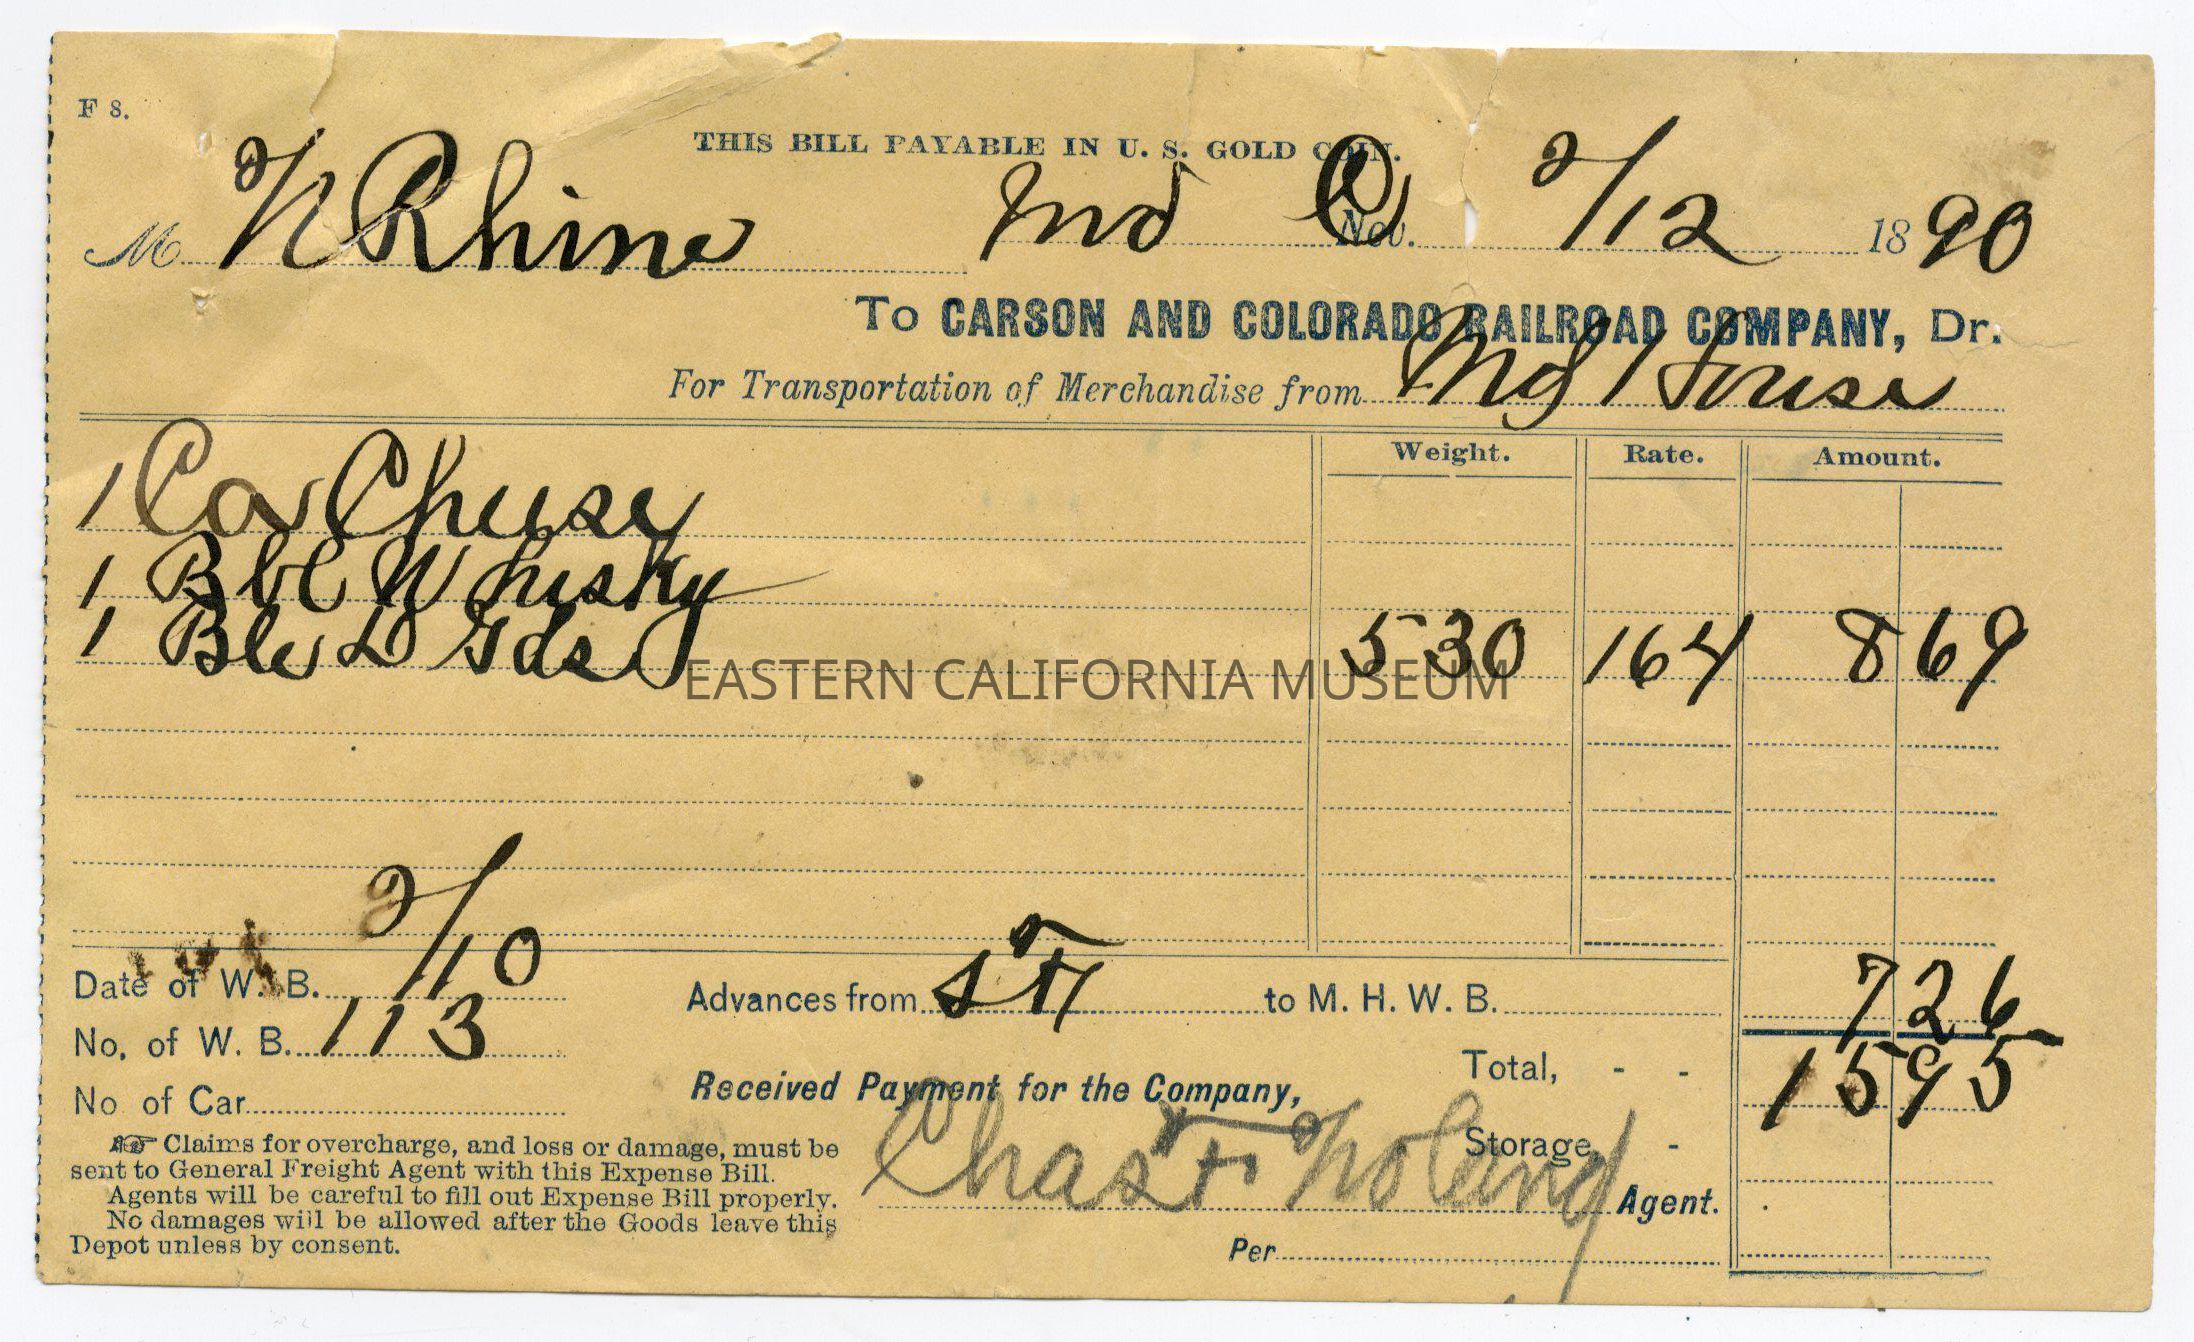 F 8.
THIS BILL PAYABLE IN U. S. GOLD COIN.
M N Rhine Ind Nev. 2/12 1890
To CARSON AND COLORADO RAILROAD COMPANY, Dr.
For Transportation of Merchandise from Md House
Weight. Rate. Amount.
1 Ca Chuse
1 Bbl Whisky
1 Ble D Gds 530 164 8 69
EASTERN CALIFORNIA MUSEUM
Date of W. B. 2/10
Advances from S F to M. H. W. B. 7 26
No. of W. B. 113
Total, - - 15 95
No of Car
Received Payment for the Company,
Storage -
Chas F Agent.
Per
Claims for overcharge, and loss or damage, must be
sent to General Freight Agent with this Expense Bill.
Agents will be careful to fill out Expense Bill properly.
No damages will be allowed after the Goods leave this
Depot unless by consent.